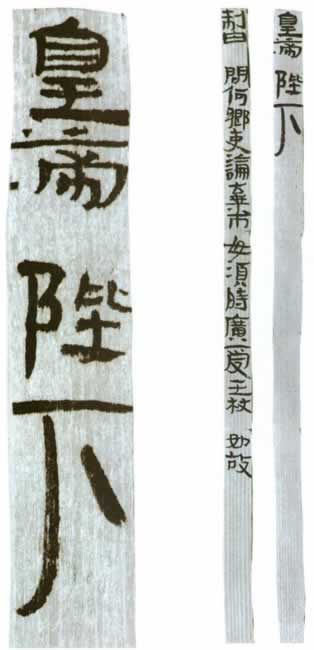 皇帝 陛下
制曰 問何鄉吏論棄市毋須時廣受王杖 如故
皇帝 陛下